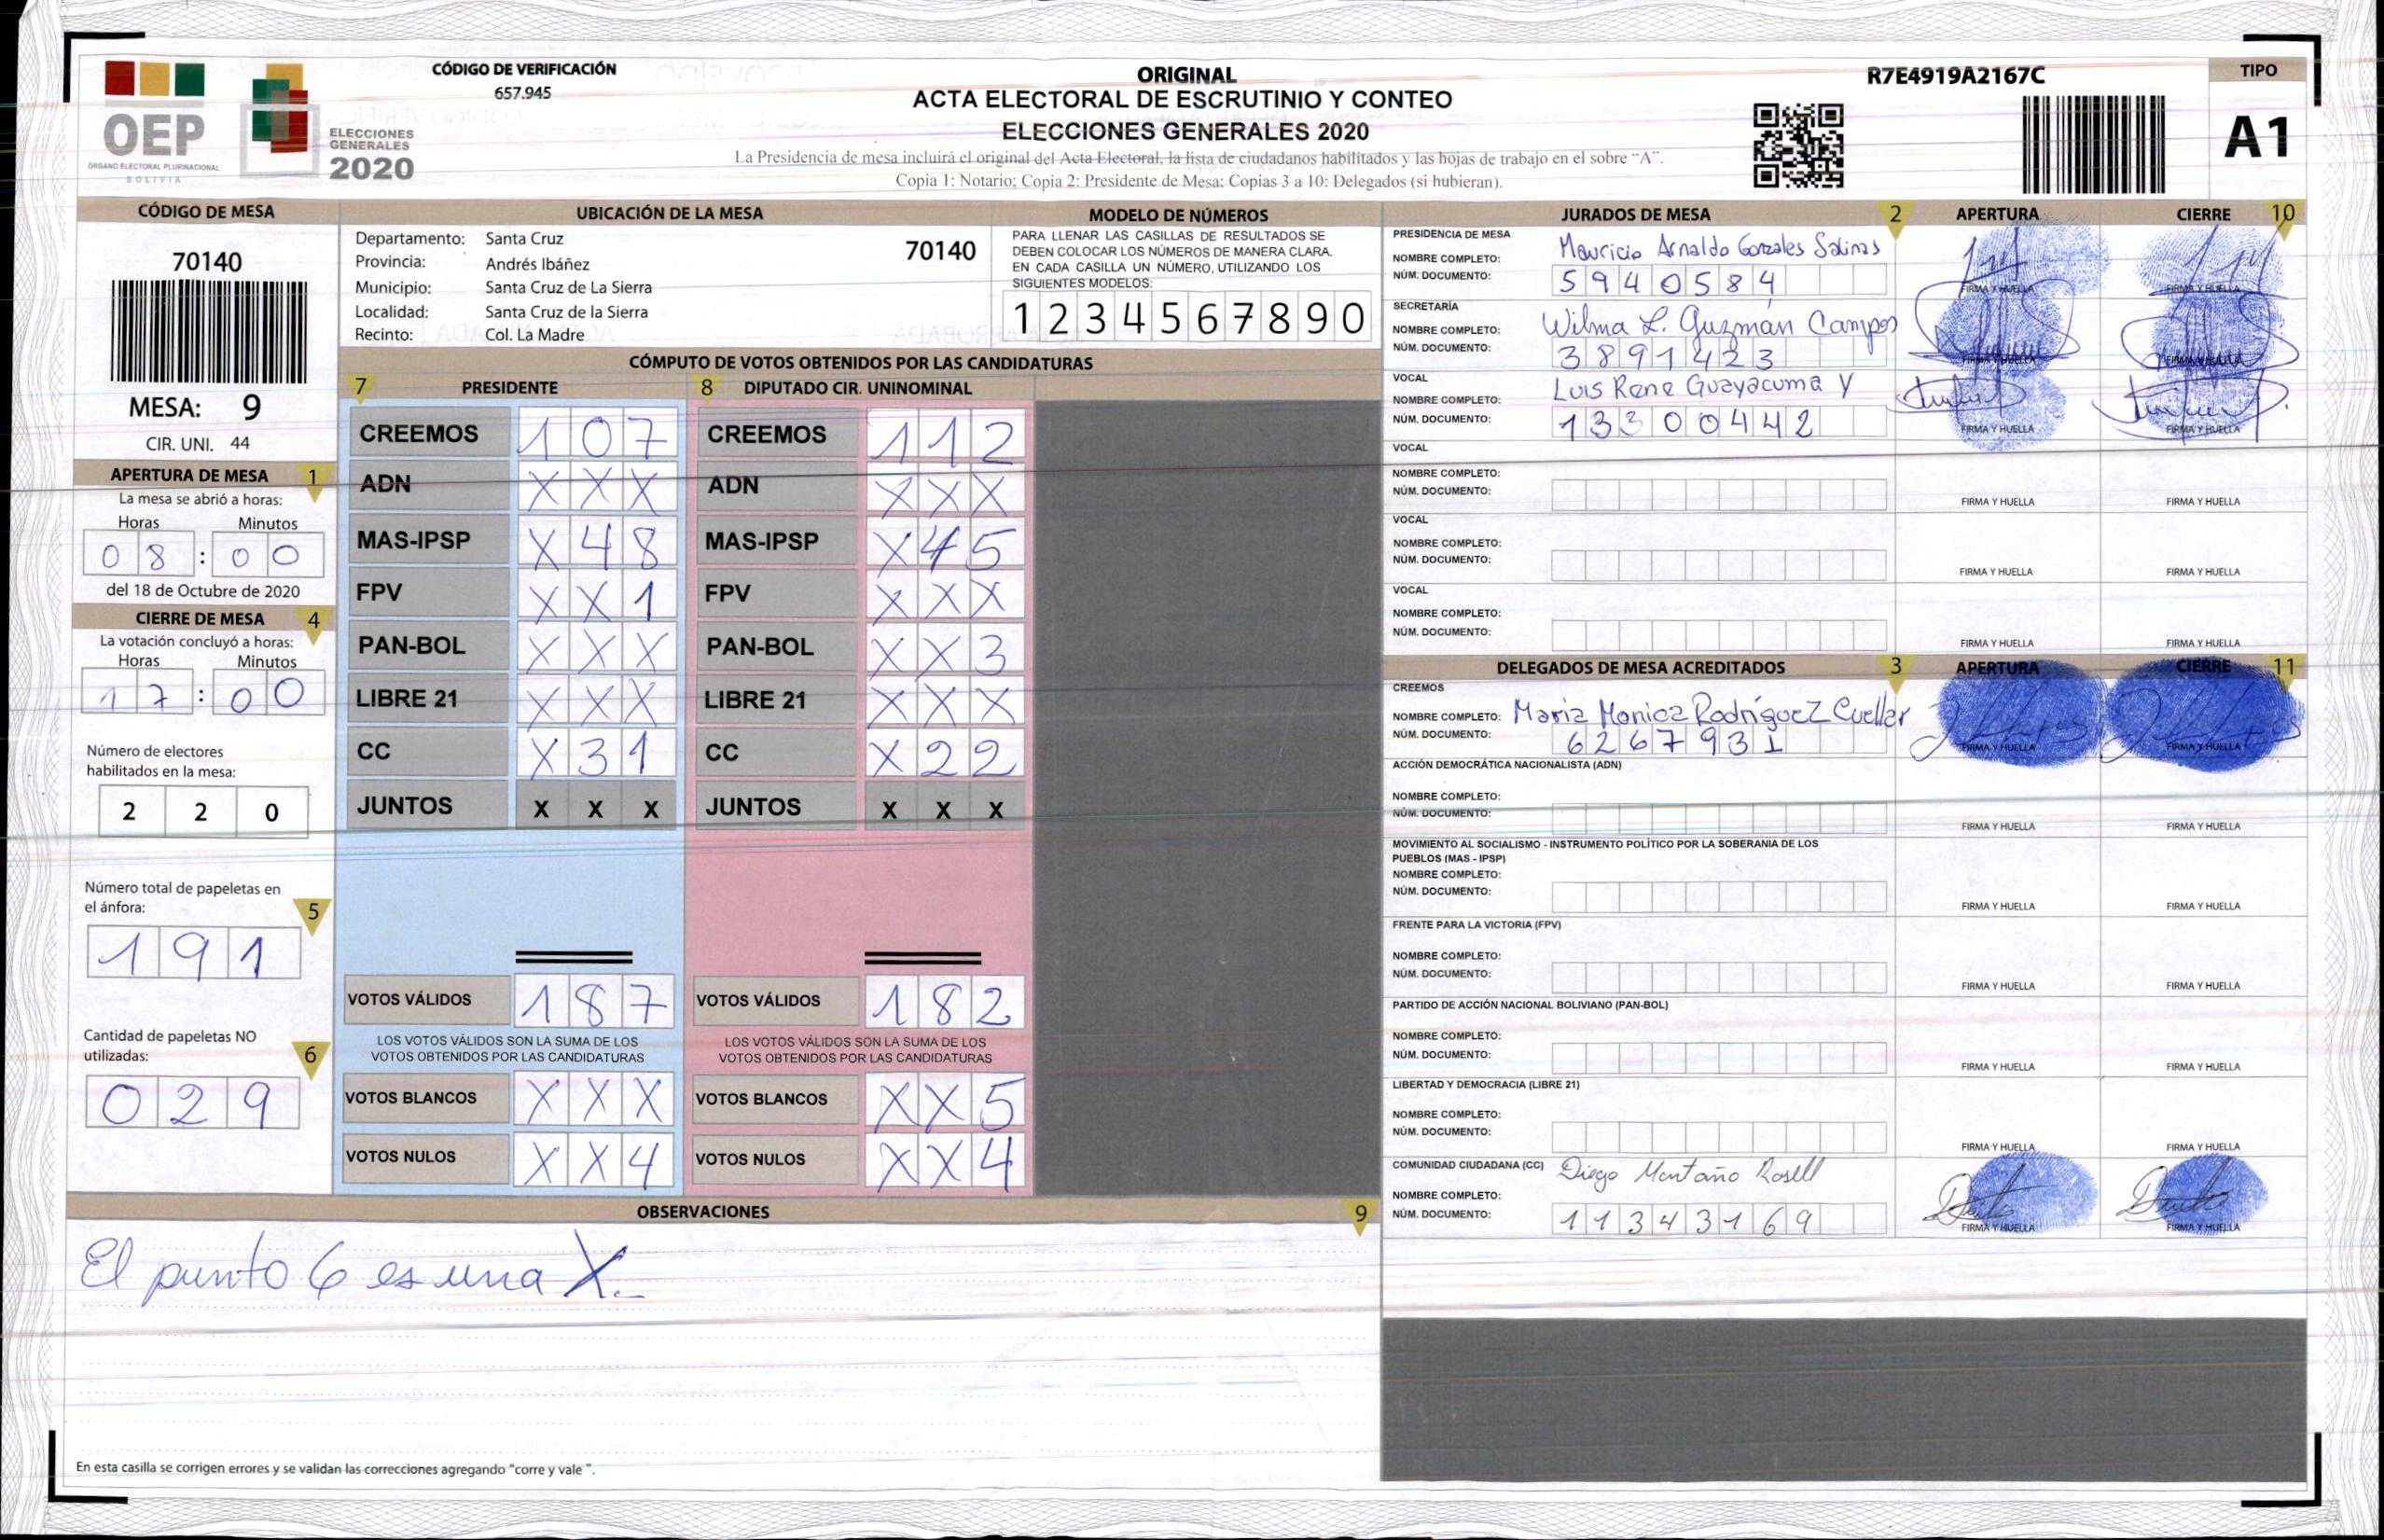 OEP
ÓRGANO ELECTORAL PLURINACIONAL
BOLIVIA
ELECCIONES
GENERALES
2020
CÓDIGO DE VERIFICACIÓN
657.945
ORIGINAL
ACTA ELECTORAL DE ESCRUTINIO Y CONTEO
ELECCIONES GENERALES 2020
La Presidencia de mesa incluirá el original del Acta Electoral, la lista de ciudadanos habilitados y las hojas de trabajo en el sobre “A”.
Copia 1: Notario; Copia 2: Presidente de Mesa; Copias 3 a 10: Delegados (si hubieran).
R7E4919A2167C
TIPO
A1
CÓDIGO DE MESA
70140
MESA: 9
CIR. UNI. 44
APERTURA DE MESA 1
La mesa se abrió a horas:
Horas Minutos
08:00
del 18 de Octubre de 2020
CIERRE DE MESA 4
La votación concluyó a horas:
Horas Minutos
17:00
Número de electores
habilitados en la mesa:
2 2 0
Número total de papeletas en
el ánfora: 5
1 9 1
Cantidad de papeletas NO
utilizadas: 6
0 2 9
UBICACIÓN DE LA MESA
Departamento: Santa Cruz 70140
Provincia: Andrés Ibáñez
Municipio: Santa Cruz de La Sierra
Localidad: Santa Cruz de la Sierra
Recinto: Col. La Madre
MODELO DE NÚMEROS
PARA LLENAR LAS CASILLAS DE RESULTADOS SE
DEBEN COLOCAR LOS NÚMEROS DE MANERA CLARA.
EN CADA CASILLA UN NÚMERO, UTILIZANDO LOS
SIGUIENTES MODELOS:
1 2 3 4 5 6 7 8 9 0
CÓMPUTO DE VOTOS OBTENIDOS POR LAS CANDIDATURAS
7 PRESIDENTE 8 DIPUTADO CIR. UNINOMINAL
CREEMOS 1 0 7 CREEMOS 1 1 2
ADN X X X ADN X X X
MAS-IPSP X 4 8 MAS-IPSP X 4 5
FPV X X 1 FPV X X X
PAN-BOL X X X PAN-BOL X X 3
LIBRE 21 X X X LIBRE 21 X X X
CC X 3 1 CC X 2 2
JUNTOS X X X JUNTOS X X X
VOTOS VÁLIDOS 1 8 7 VOTOS VÁLIDOS 1 8 2
LOS VOTOS VÁLIDOS SON LA SUMA DE LOS LOS VOTOS VÁLIDOS SON LA SUMA DE LOS
VOTOS OBTENIDOS POR LAS CANDIDATURAS VOTOS OBTENIDOS POR LAS CANDIDATURAS
VOTOS BLANCOS X X X VOTOS BLANCOS X X 5
VOTOS NULOS X X 4 VOTOS NULOS X X 4
OBSERVACIONES 9
El punto 6 es una X.
En esta casilla se corrigen errores y se validan las correcciones agregando "corre y vale ".
JURADOS DE MESA 2 APERTURA CIERRE 10
PRESIDENCIA DE MESA
NOMBRE COMPLETO: Mauricio Arnaldo Gonzales Salinas
NÚM. DOCUMENTO: 5940584
FIRMA Y HUELLA FIRMA Y HUELLA
SECRETARÍA
NOMBRE COMPLETO: Wilma L. Guzmán Campos
NÚM. DOCUMENTO: 3891423
FIRMA Y HUELLA FIRMA Y HUELLA
VOCAL
NOMBRE COMPLETO: Luis Rene Guayacuma Y
NÚM. DOCUMENTO: 13300442
FIRMA Y HUELLA FIRMA Y HUELLA
VOCAL
NOMBRE COMPLETO:
NÚM. DOCUMENTO:
FIRMA Y HUELLA FIRMA Y HUELLA
VOCAL
NOMBRE COMPLETO:
NÚM. DOCUMENTO:
FIRMA Y HUELLA FIRMA Y HUELLA
VOCAL
NOMBRE COMPLETO:
NÚM. DOCUMENTO:
FIRMA Y HUELLA FIRMA Y HUELLA
DELEGADOS DE MESA ACREDITADOS 3 APERTURA CIERRE 11
CREEMOS
NOMBRE COMPLETO: Maria Monica Rodríguez Cuellar
NÚM. DOCUMENTO: 6267931
FIRMA Y HUELLA FIRMA Y HUELLA
ACCIÓN DEMOCRÁTICA NACIONALISTA (ADN)
NOMBRE COMPLETO:
NÚM. DOCUMENTO:
FIRMA Y HUELLA FIRMA Y HUELLA
MOVIMIENTO AL SOCIALISMO - INSTRUMENTO POLÍTICO POR LA SOBERANIA DE LOS
PUEBLOS (MAS - IPSP)
NOMBRE COMPLETO:
NÚM. DOCUMENTO:
FIRMA Y HUELLA FIRMA Y HUELLA
FRENTE PARA LA VICTORIA (FPV)
NOMBRE COMPLETO:
NÚM. DOCUMENTO:
FIRMA Y HUELLA FIRMA Y HUELLA
PARTIDO DE ACCIÓN NACIONAL BOLIVIANO (PAN-BOL)
NOMBRE COMPLETO:
NÚM. DOCUMENTO:
FIRMA Y HUELLA FIRMA Y HUELLA
LIBERTAD Y DEMOCRACIA (LIBRE 21)
NOMBRE COMPLETO:
NÚM. DOCUMENTO:
FIRMA Y HUELLA FIRMA Y HUELLA
COMUNIDAD CIUDADANA (CC) Diego Montaño Rosell
NOMBRE COMPLETO:
NÚM. DOCUMENTO: 11343169
FIRMA Y HUELLA FIRMA Y HUELLA